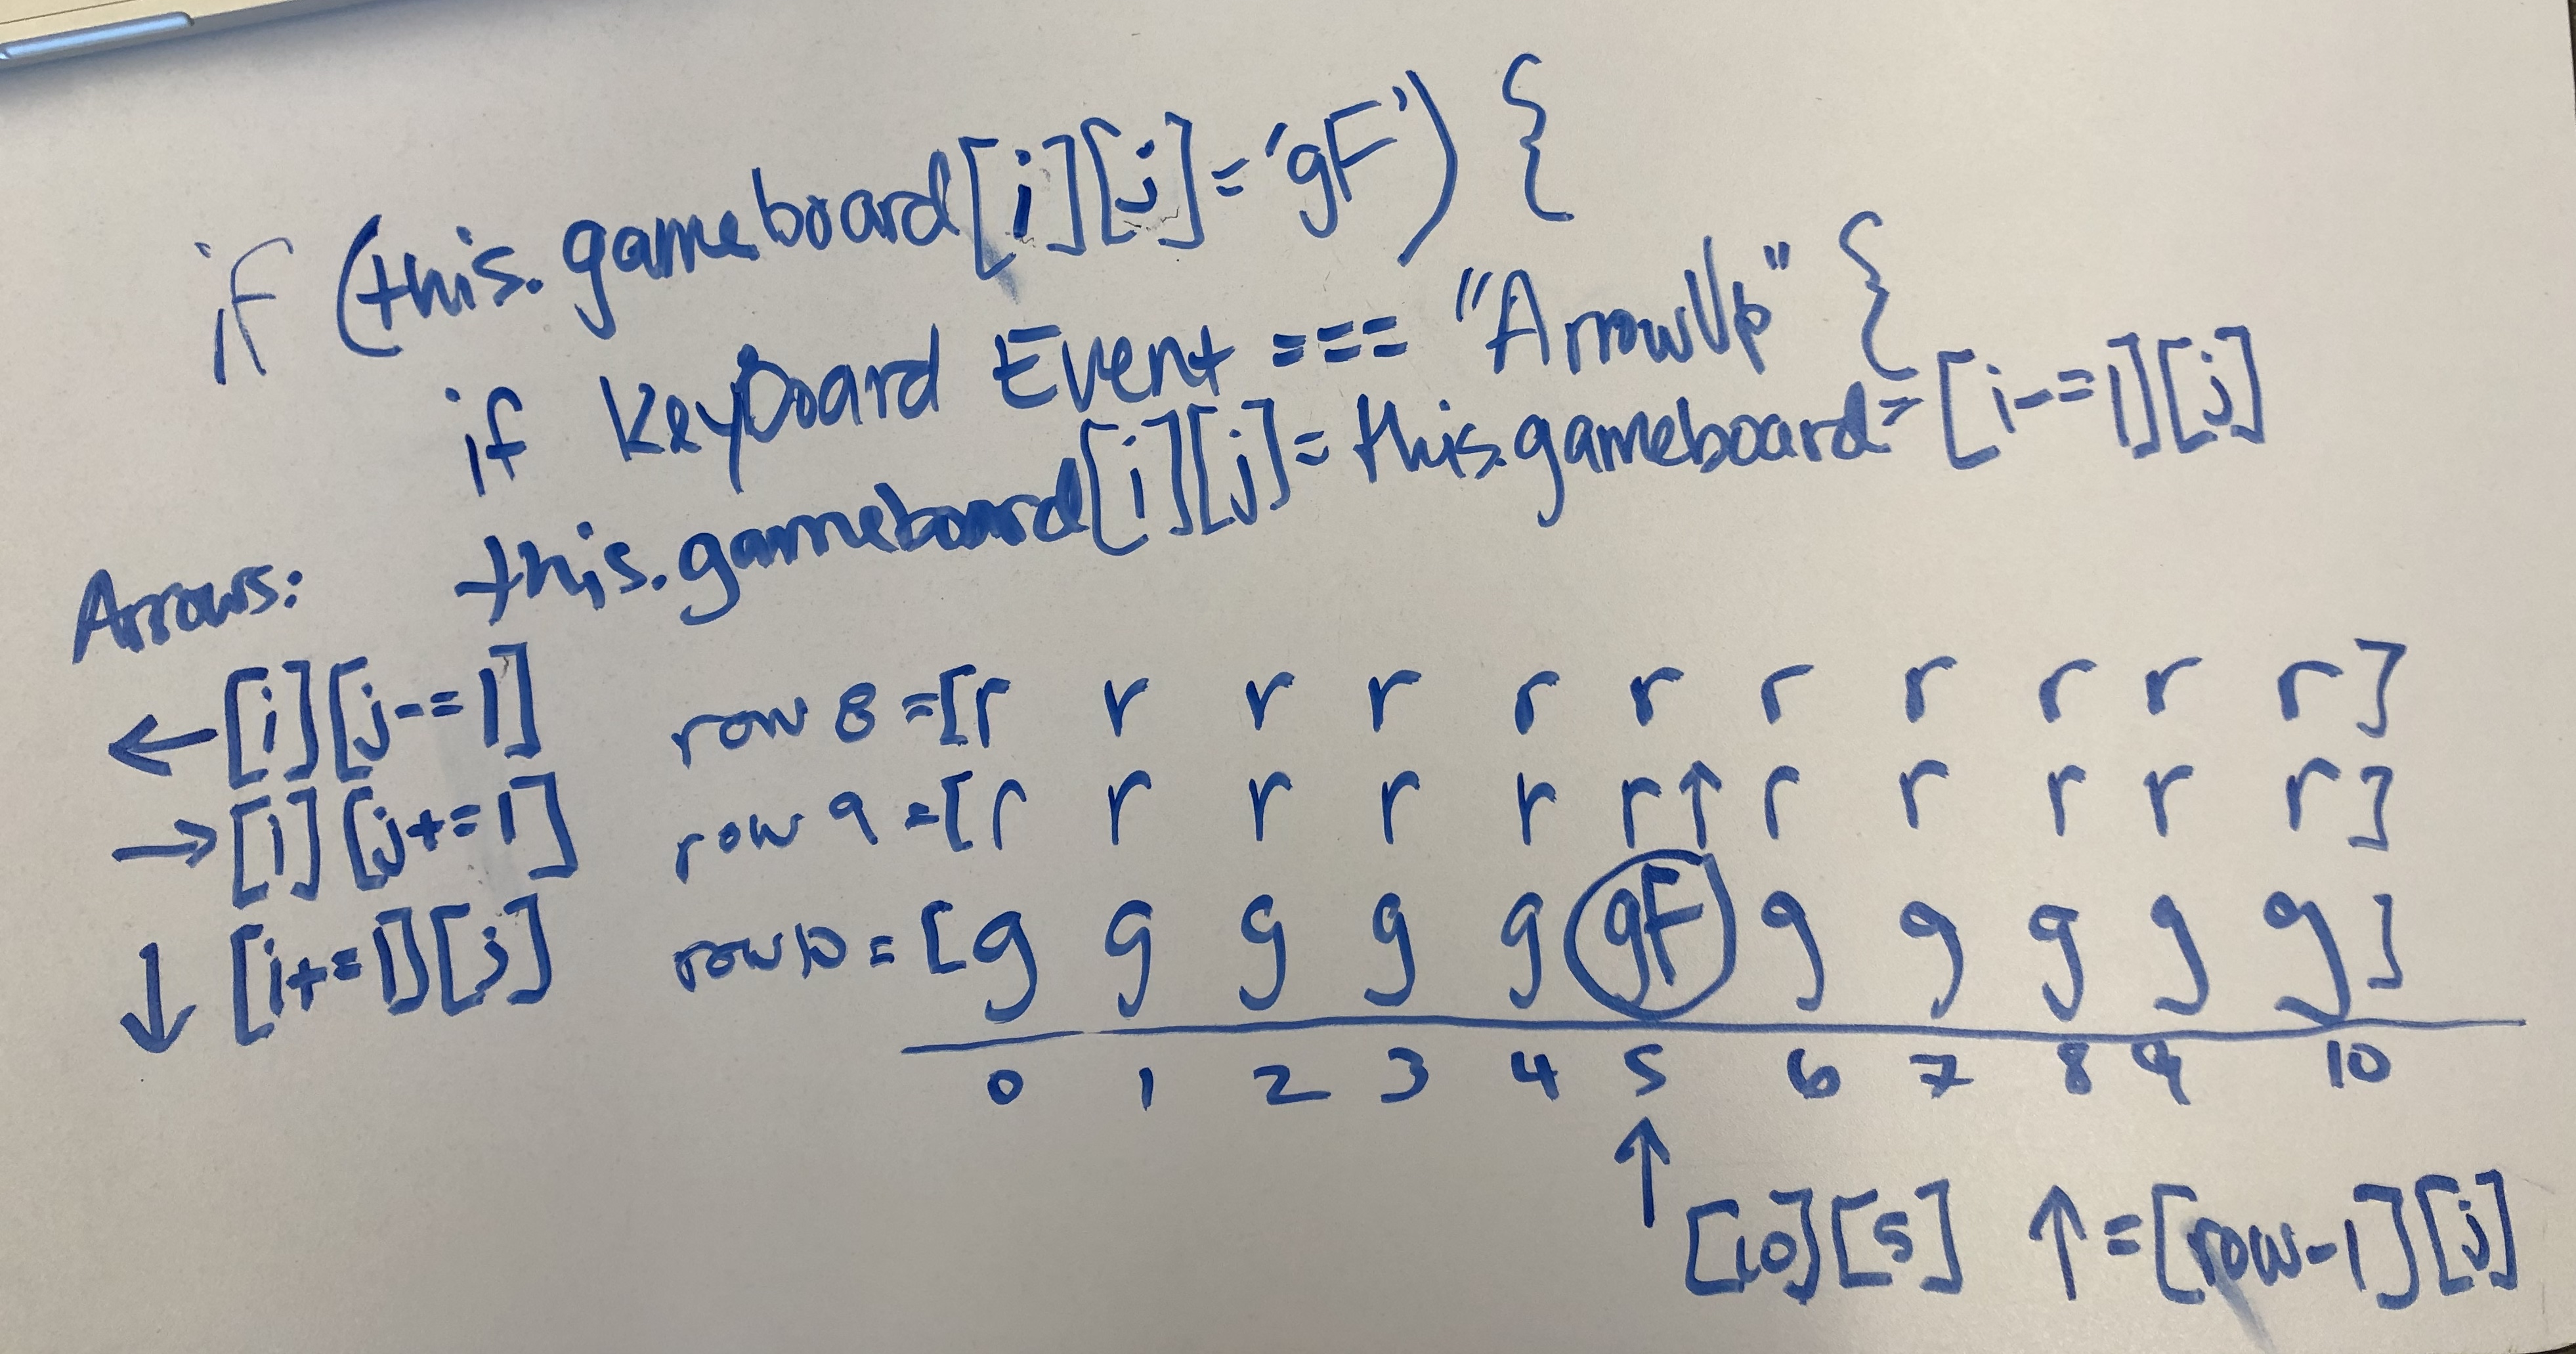 if (this.gameboard[i][j]='gF') {
if Keyboard Event === "ArrowUp" {
this.gameboard[i][j]=this.gameboard=[i-=1][j]
Arrows:
←[i][j-=1]
→[i][j+=1]
↓[i+=1][j]
row 8=[r r r r r r r r r r r]
row 9=[r r r r r r↑ r r r r r]
row10=[g g g g g gF g g g g g]
0 1 2 3 4 5 6 7 8 9 10
↑[10][5] ↑=[row-1][j]